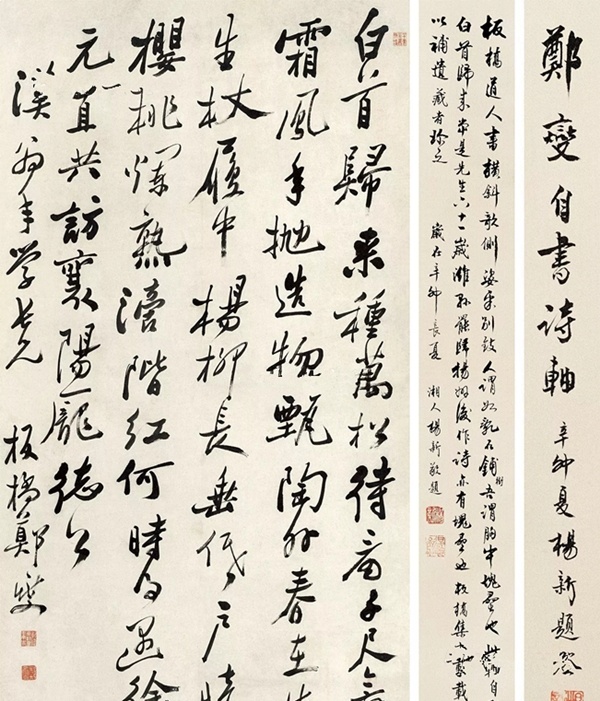 鄭燮自書詩軸 辛卯夏楊新題簽
板橋道人書橫斜欹側姿采別致人謂如亂石鋪街吾謂胸中塊壘也此軸自
白首歸來當是先生六十一歲濰縣罷歸揚州後作詩亦有塊壘也板橋集未載
以補遺藏者珍之 歲在辛卯長夏 湘人楊新敬題
白首歸來種萬松待看千尺舞
霜風手拋造物甄陶外春在先
生杖履中楊柳長垂低戶暗
櫻桃爛熟滴階紅何時得遇徐
元直共訪襄陽龐德公
溪翁年學老兄 板橋鄭燮